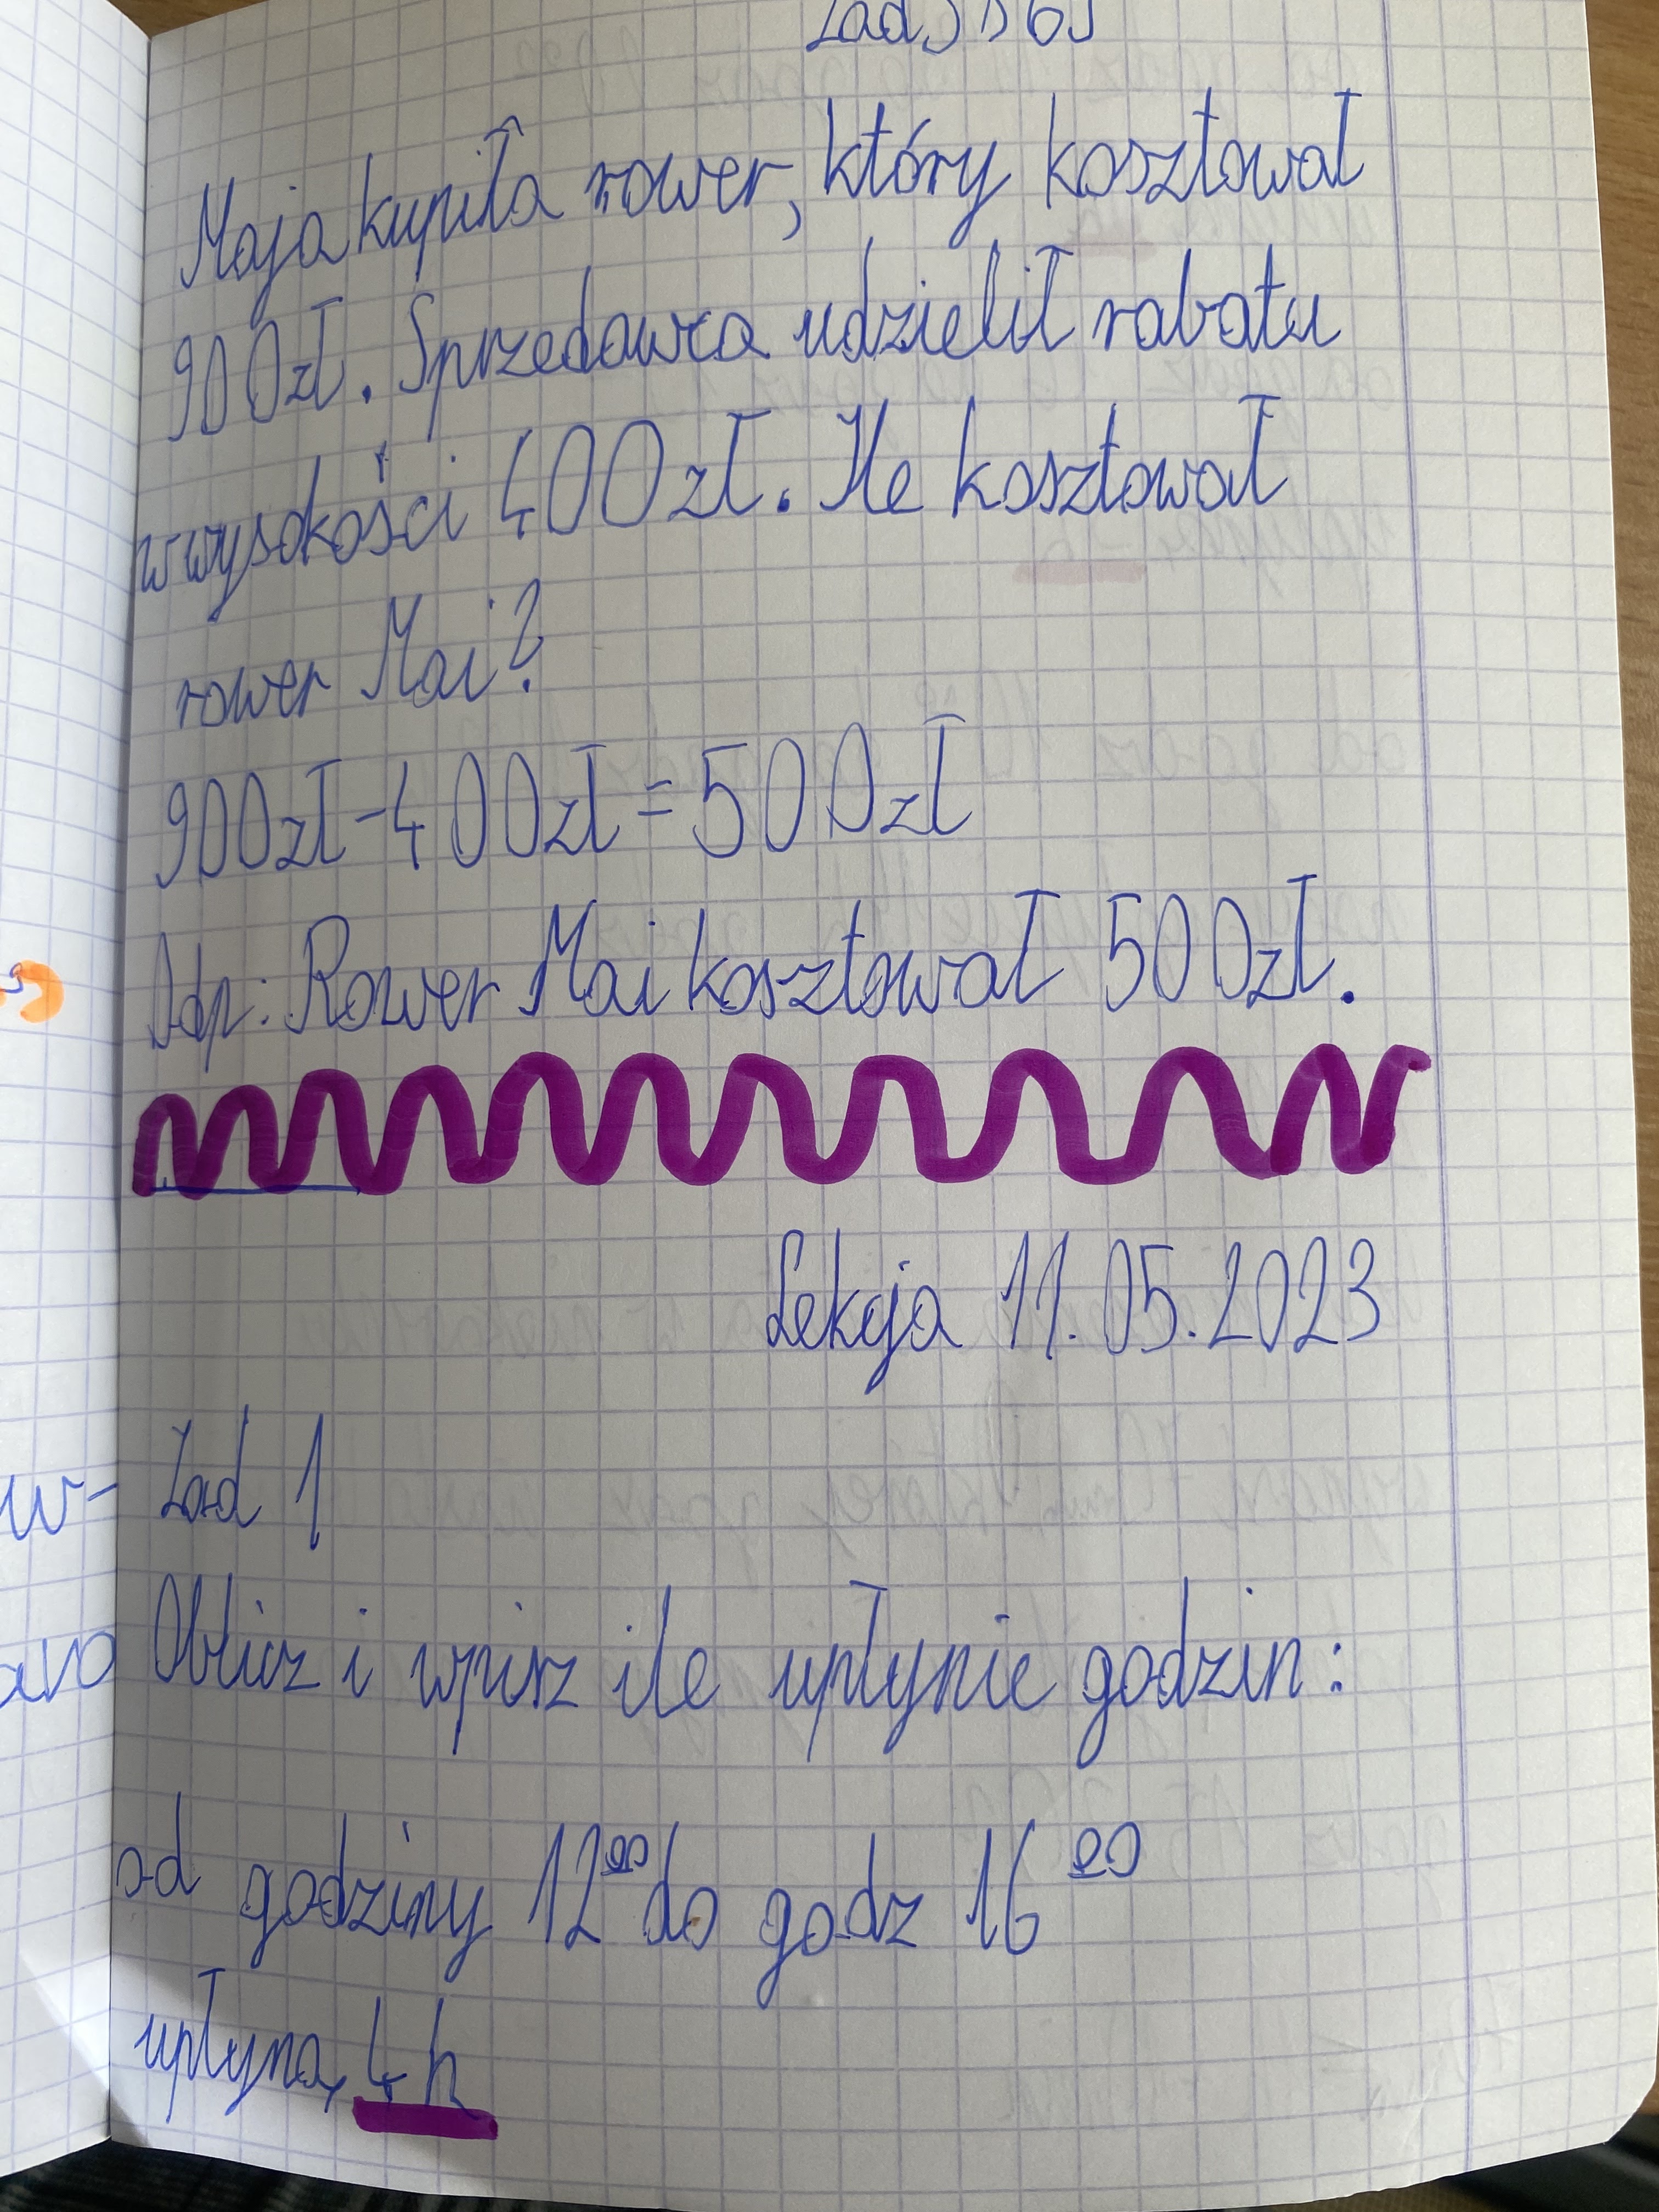 Maja kupiła rower, który kosztował
900zł. Sprzedawca udzielił rabatu
w wysokości 400zł. Ile kosztował
rower Mai?
900zł-400zł=500zł
Odp: Rower Mai kosztował 500zł.
Lekcja 11.05.2023
Zad 1
Oblicz i wpisz ile upłynie godzin:
od godziny 12⁰⁰ do godz 16⁰⁰
upłyną 4h